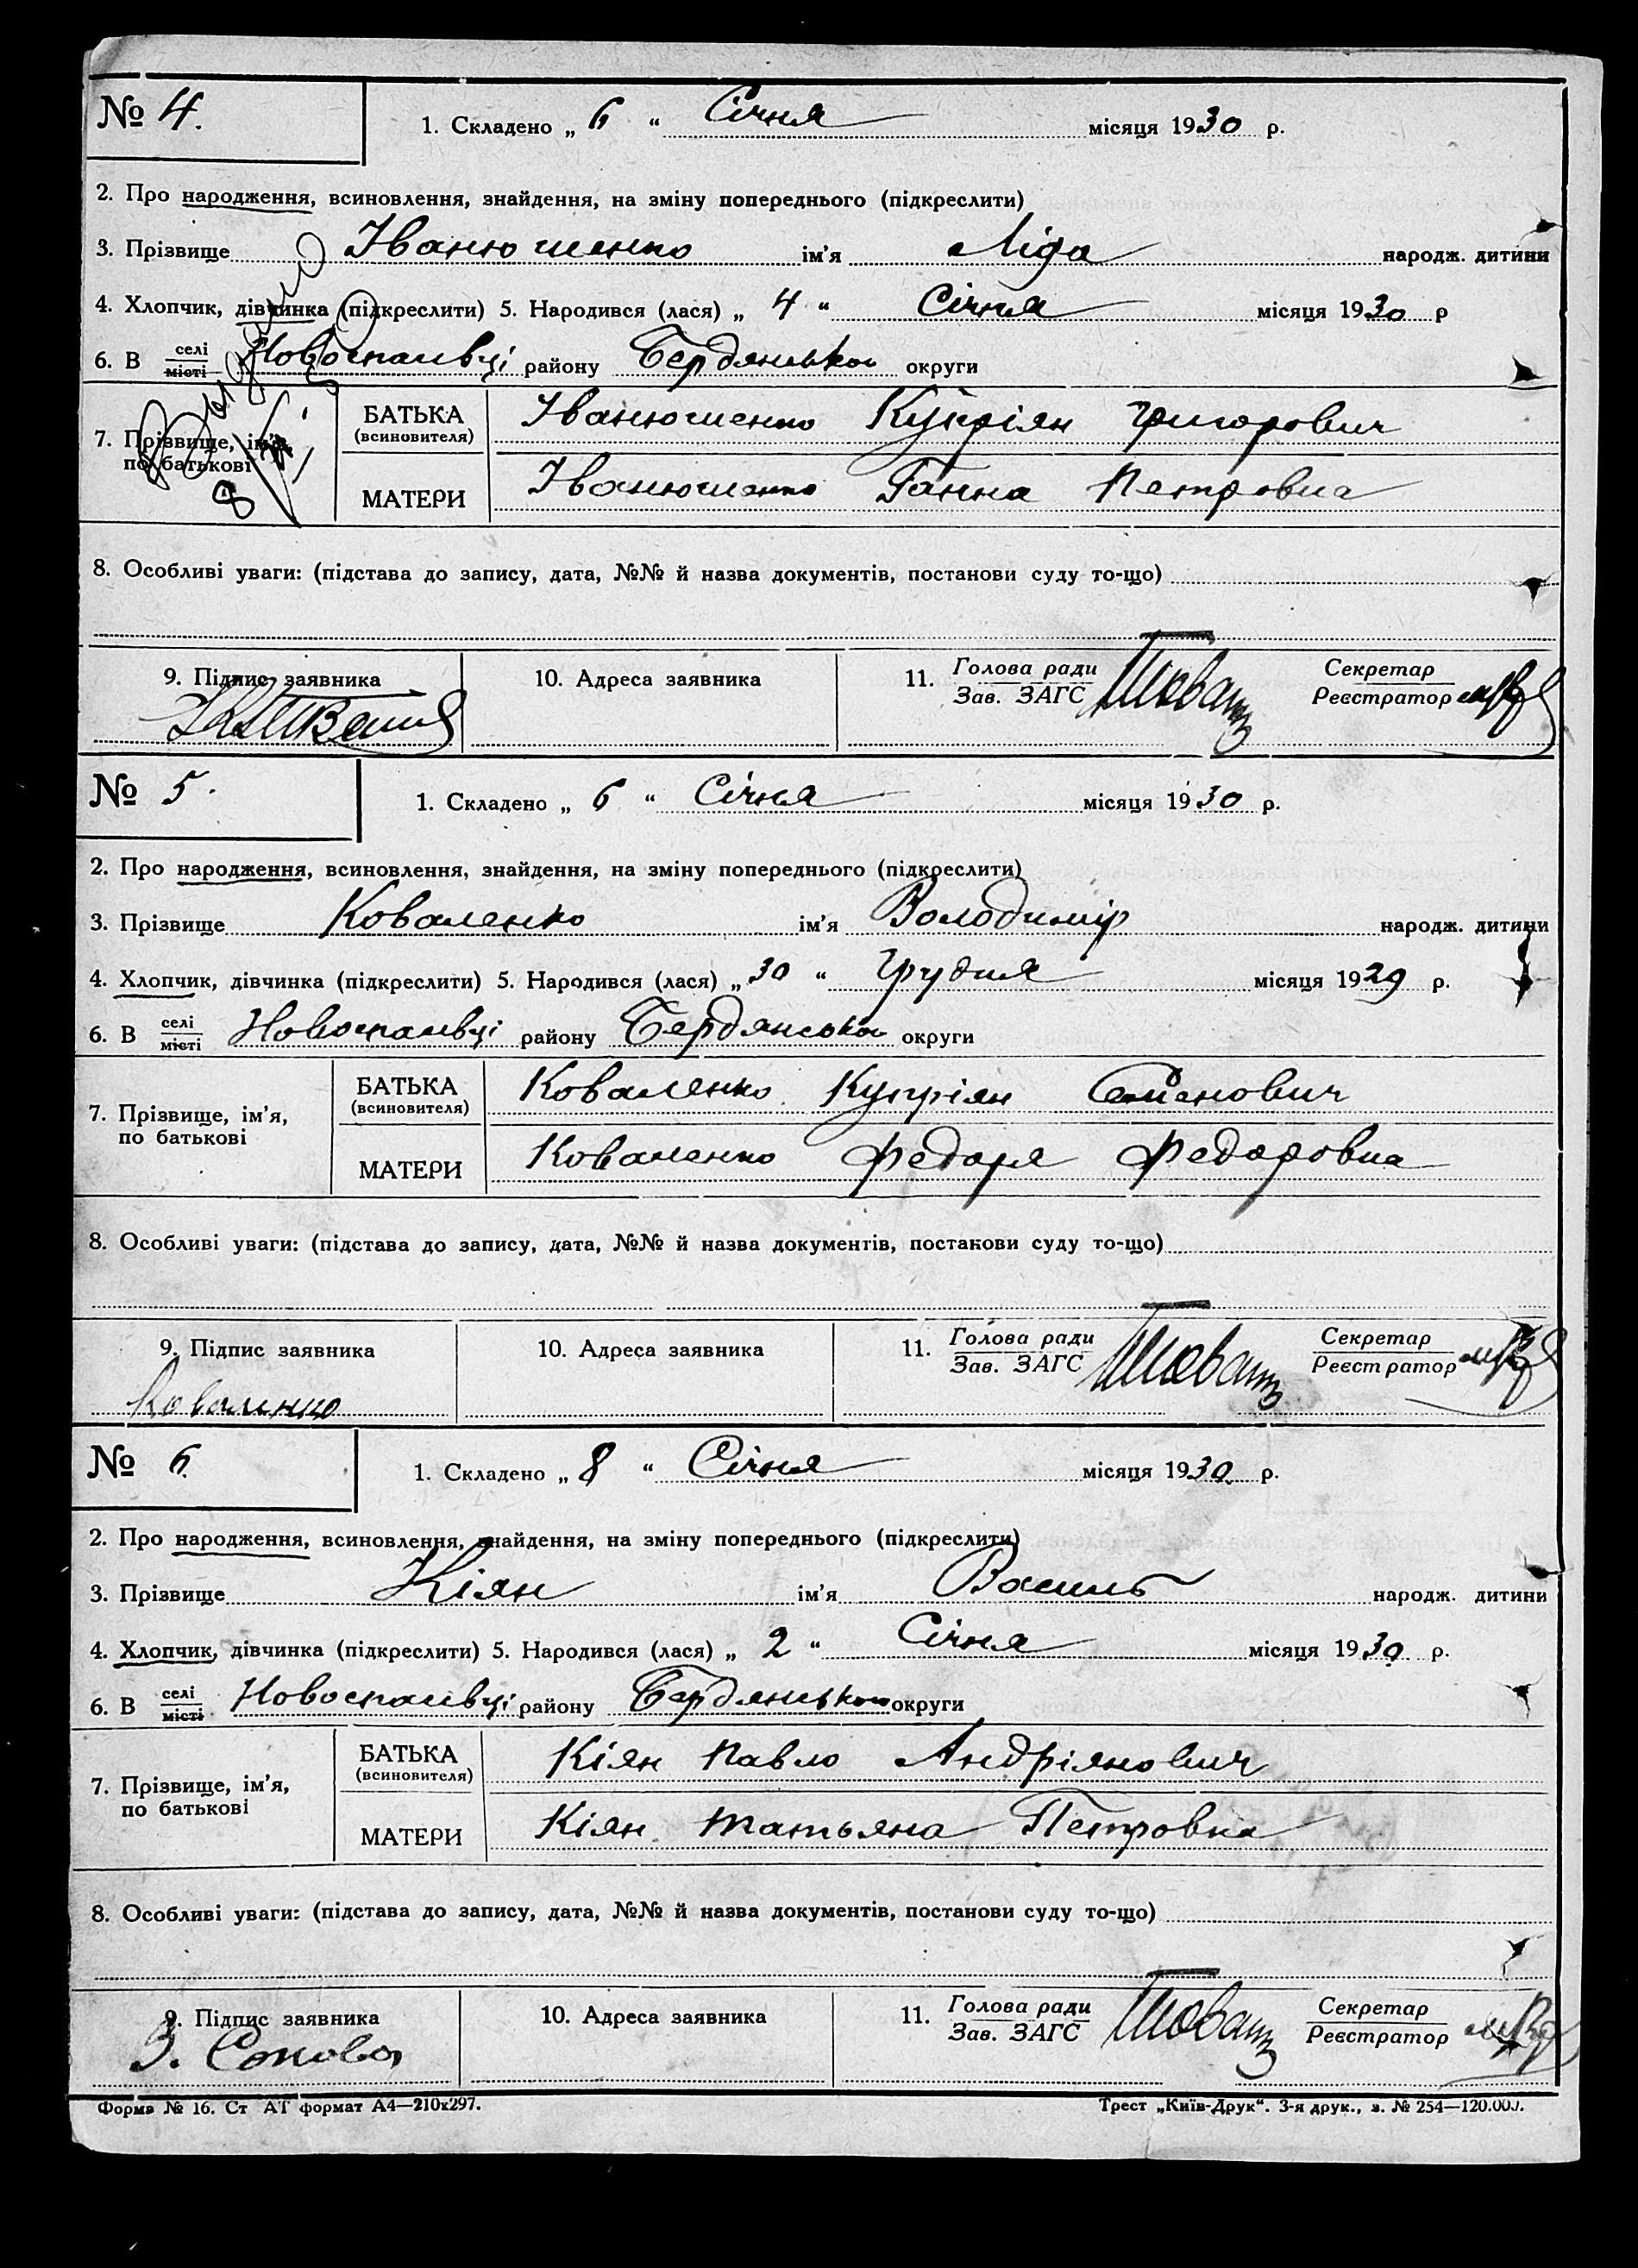 № 4. 1. Складено „ 6 “ Січня місяця 1930 р.
2. Про народження, всиновлення, знайдення, на зміну попереднього (підкреслити)
3. Прізвище Іванюченко ім’я Ліда народж. дитини
4. Хлопчик, дівчинка (підкреслити) 5. Народився (лася) „ 4 “ Січня місяця 1930 р
6. В селі місті Новоспаивці району Бердянської округи
7. Прізвище, ім’я, по батькові
БАТЬКА (всиновителя) Іванюченко Купріян Григорович
МАТЕРИ Іванюченко Ганна Петровна
8. Особливі уваги: (підстава до запису, дата, №№ й назва документів, постанови суду то-що)
9. Підпис заявника 10. Адреса заявника 11. Голова ради Зав. ЗАГС Секретар Реєстратор
№ 5. 1. Складено „ 6 “ Січня місяця 1930 р.
2. Про народження, всиновлення, знайдення, на зміну попереднього (підкреслити)
3. Прізвище Коваленко ім’я Володимір народж. дитини
4. Хлопчик, дівчинка (підкреслити) 5. Народився (лася) „ 30 “ Грудня місяця 1929 р.
6. В селі місті Новоспаивці району Бердянської округи
7. Прізвище, ім’я, по батькові
БАТЬКА (всиновителя) Коваленко Купріян Семенович
МАТЕРИ Коваленко Федоря Федоровна
8. Особливі уваги: (підстава до запису, дата, №№ й назва документів, постанови суду то-що)
9. Підпис заявника 10. Адреса заявника 11. Голова ради Зав. ЗАГС Секретар Реєстратор
Коваленко
№ 6. 1. Складено „ 8 “ Січня місяця 1930 р.
2. Про народження, всиновлення, знайдення, на зміну попереднього (підкреслити)
3. Прізвище Кіян ім’я Василь народж. дитини
4. Хлопчик, дівчинка (підкреслити) 5. Народився (лася) „ 2 “ Січня місяця 1930 р.
6. В селі місті Новоспаивці району Бердянської округи
7. Прізвище, ім’я, по батькові
БАТЬКА (всиновителя) Кіян Павло Андріянович
МАТЕРИ Кіян Татьяна Петровна
8. Особливі уваги: (підстава до запису, дата, №№ й назва документів, постанови суду то-що)
9. Підпис заявника 10. Адреса заявника 11. Голова ради Зав. ЗАГС Секретар Реєстратор
Форма № 16. Ст АТ формат А4—210х297. Трест „Київ-Друк“. 3-я друк., з. № 254—120.000.